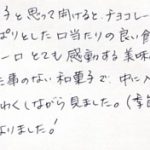 子と思って開けると、チョコレー
ぱりとした口当たりの良い食
ーロとても感動する美味
た事のない和菓子で、中に入
わくしながら見ました。(幸
なりました!